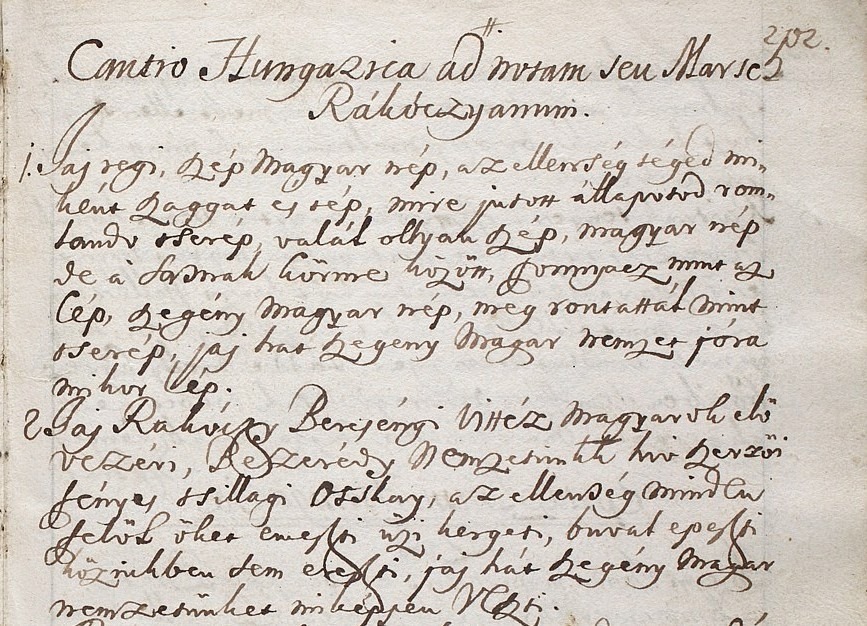 202.
Cantio Hungarica ad notam seu Marsch
Rákóczyanum.
1. Jaj regi, szép Magyar nép, az ellenség téged mi-
ként szaggat és tép, mire jutott állapotod rom-
lando tserép, valál ollyan szép, magyar nép
de à Sasnak körme között, fonnyacz mint az
Lép, szegény Magyar nép, meg rontattál mint
tserép, jaj hat szegeny Magar nemzet jóra
mikor lép.
2. Jaj Rakóczy Beresényi Vittéz Magyarok elö
vezéri, Beszerédy Nemzetünk hiv szerzöi
fényes tsillagi Otskay, az ellenség mindeu
felöl öket emeszti üzi kergeti, buval epeszti
közinkben sem ereszti, jaj hát szegény Magar
nemzetünket miképpen